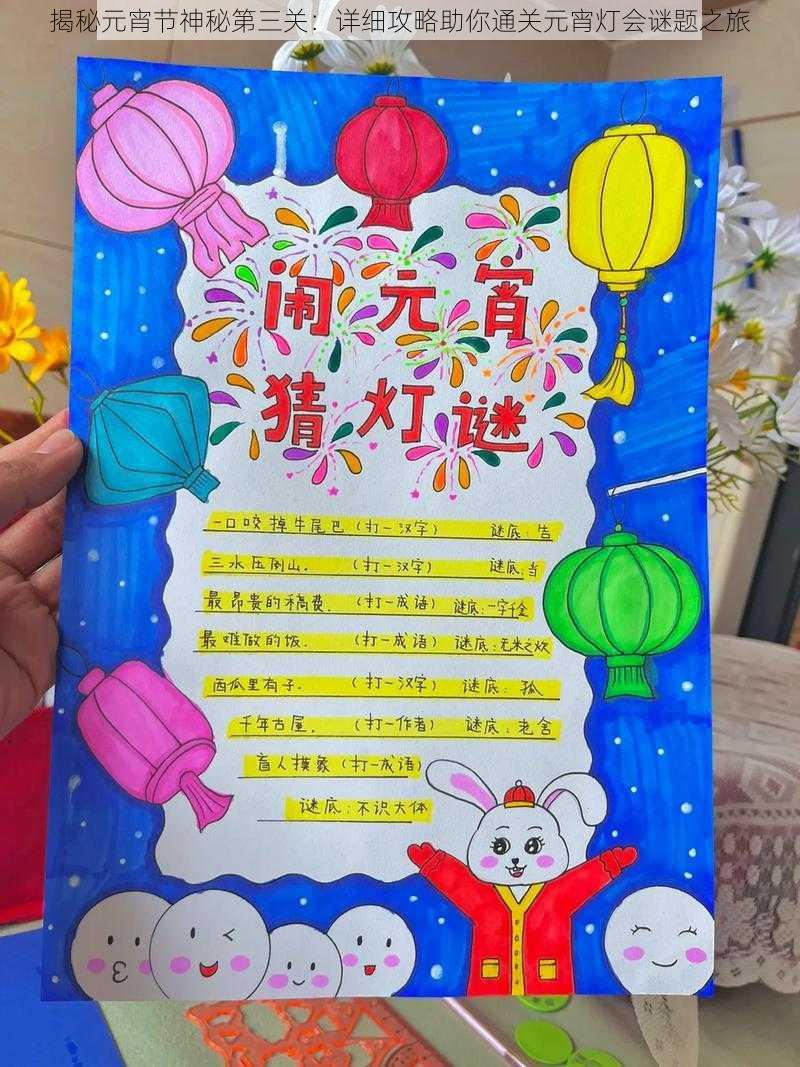 揭秘元宵节神秘第三关：详细攻略助你通关元宵灯会谜题之旅
闹元宵
猜灯谜
一口咬掉牛尾巴(打一汉字) 谜底:告
三水压倒山. (打一汉字) 谜底:当
最昂贵的稿费. (打一成语) 谜底:一字千金
最难做的饭. (打一成语) 谜底:无米之炊
西瓜里有子. (打一汉字) 谜底: 孤
千年古屋. (打一作者) 谜底: 老舍
盲人摸象(打一成语)
谜底:不识大体